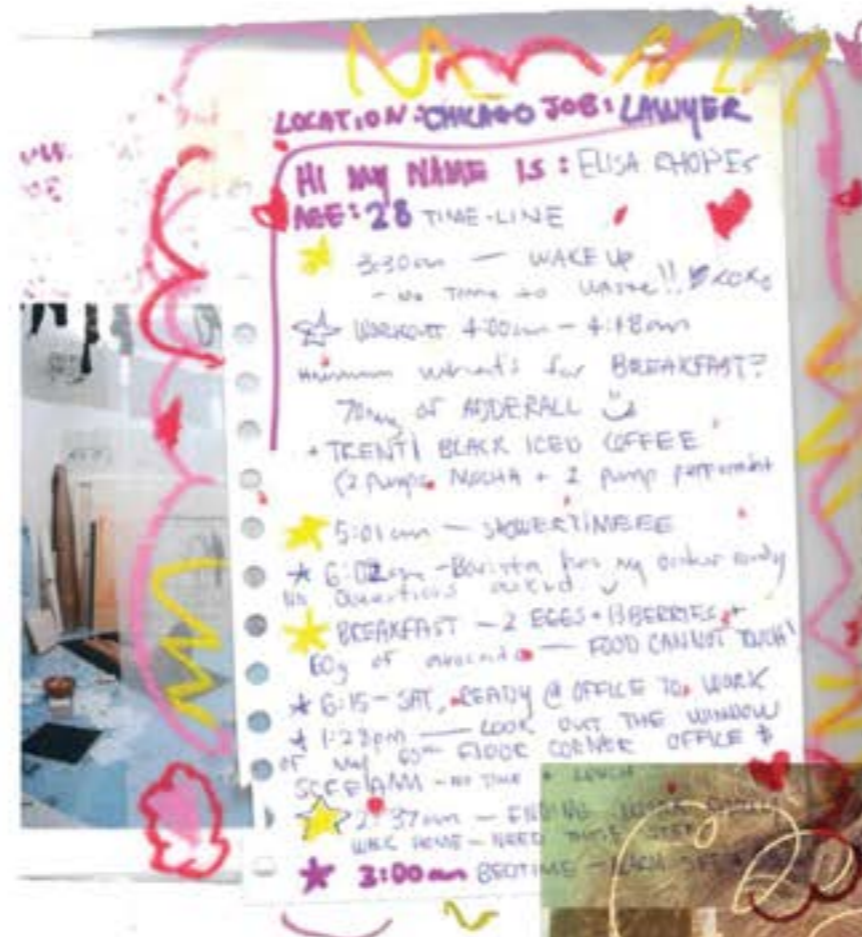 LOCATION: CHICAGO JOB: LAWYER
HI MY NAME IS: ELISA
AGE: 28 TIME-LINE
3:30am — WAKE UP
- no TIME to WASTE!!
WORKOUT 4:00am - 4:18am
what's for BREAKFAST?
70mg OF ADDERALL
+ TRENTI BLACK ICED COFFEE
(2 pumps MOCHA + 2 pump peppermint
5:01am —
* 6:02am - Barista has my order ready
No Questions asked
BREAKFAST — 2 EGGS + 13 BERRIES +
60g of avocado — FOOD CANNOT TOUCH!
* 6:15 - SAT, READY @ OFFICE TO WORK
* 1:28pm — LOOK OUT THE WINDOW
OF my FLOOR CORNER OFFICE &
SCREAM - NO TIME LUNCH
2:37am —
WALK HOME - NEED STEPS
* 3:00am BEDTIME —